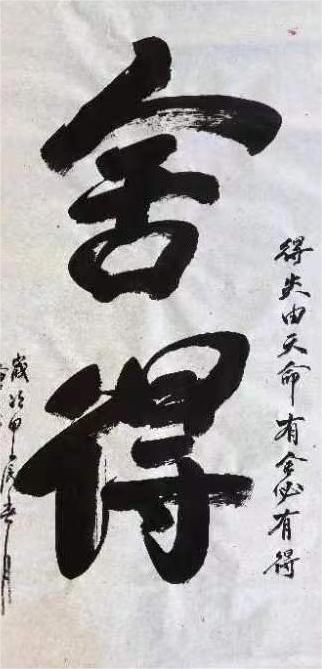 舍得
得失由天命有舍必有得
歲次甲辰春月